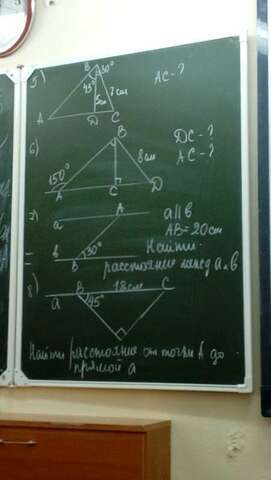 5) B 30° AC-?
45° 7 см
5см
A D C
6) B DC-?
8см AC-?
150°
A C D
7) A a||b
a AB=20см
b 30° Найти
B расстояние между a и b
8) B 18см C
a 45°
Найти расстояние от точки A до
прямой a